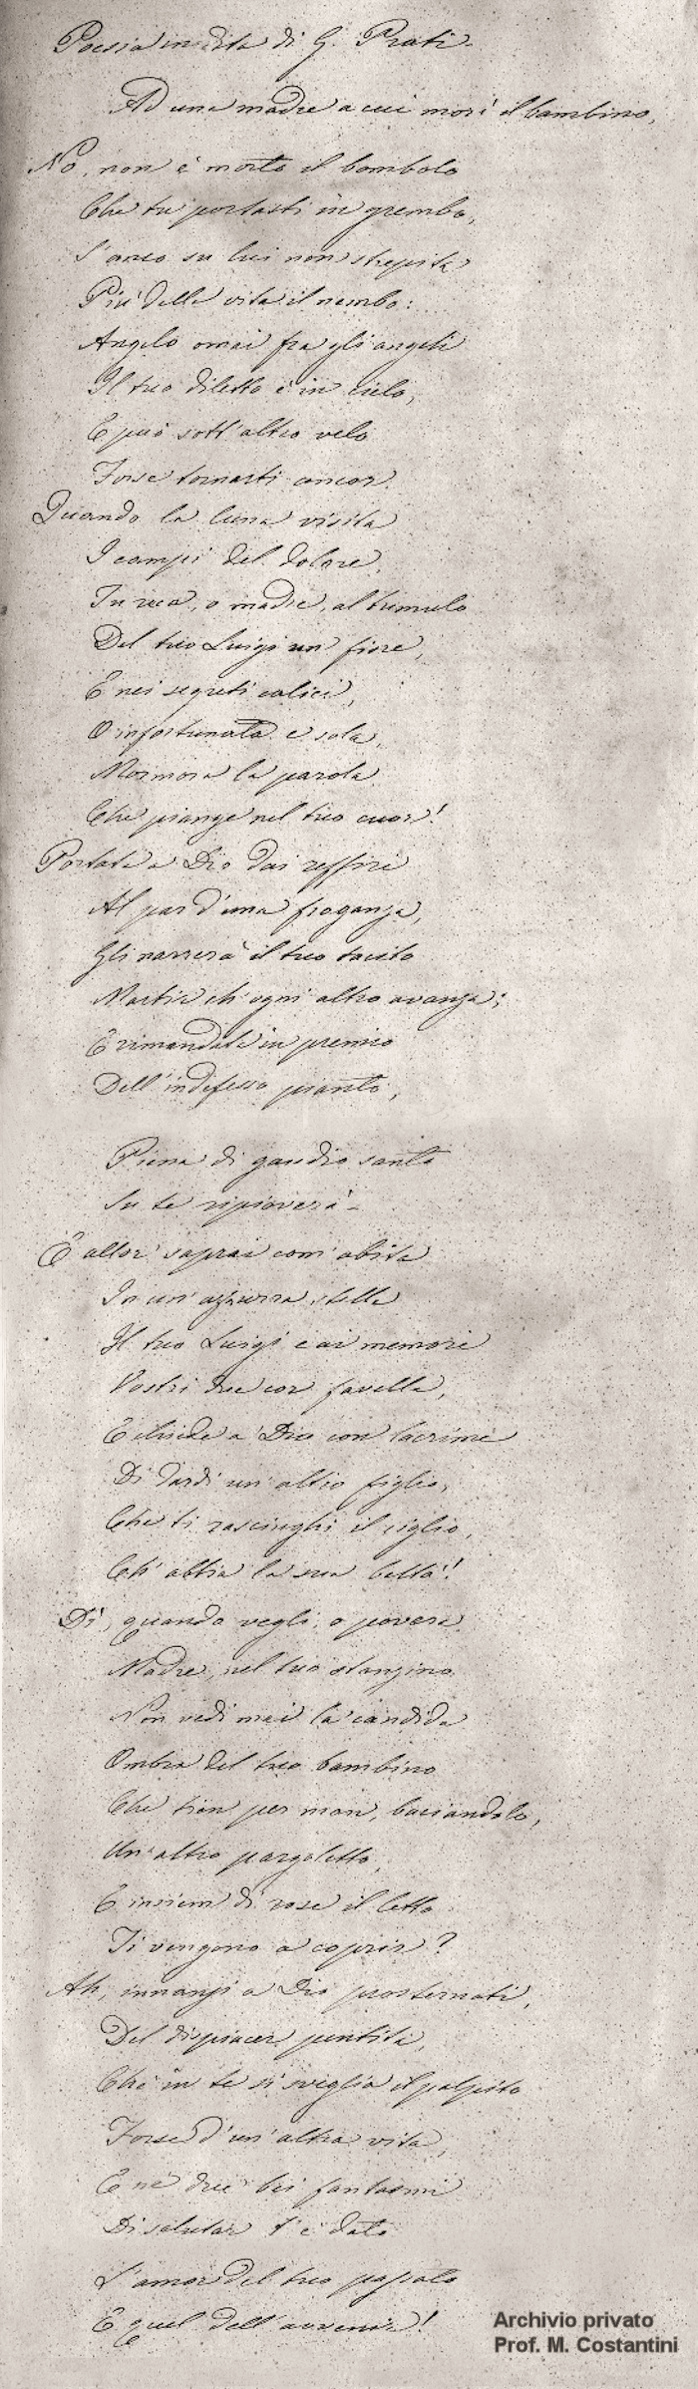 Poesia inedita di G. Prati.
Ad una madre a cui morì il bambino,
No, non è morto il bambolo
Che tu portasti in grembo,
su lui non strepita
Più della vita il nembo:
Angelo omai fra gli angeli
Il tuo diletto è in cielo,
E può sott'altro velo
Forse tornarti ancor.
Quando la luna visita
I campi del dolore,
Tu reca, o madre, al tumulo
Del tuo Luigi un fiore,
E nei segreti calici,
O infortunata e sola,
Mormora la parola
Che piange nel tuo cuor!
Portata a Dio dai zeffiri
Al par d'una fraganza,
Gli narrerà il tuo tacito
Martir ch'ogni altro avanza;
E rimandata in premio
Dell'indefesso pianto,
Piena di gaudio santo
Su te ripioverà.
E allor saprai com'abita
In un'azzurra stella
Il tuo Luigi e ai memori
Vostri due cor favella,
E chiede a Dio con lacrime
Di darti un altro figlio,
Che ti rasciughi il ciglio,
Ch'abbia la sua beltà!
Di', quando vegli, o povera
Madre, nel tuo stanzino
Non vedi mai la candida
Ombra del tuo bambino
Che tien per man, baciandolo,
Un altro pargoletto,
E insiem di rose il letto
Ti vengono a coprir?
Ah, innanzi a Dio prosternati,
Del dispiacer pentita,
Chè in te si sveglia il palpito
Forse d'un'altra vita,
E ne' due bei fantasmi
Di salutar t'è dato
L'amor del tuo passato
E quel dell'avvenir!
Archivio privato
Prof. M. Costantini